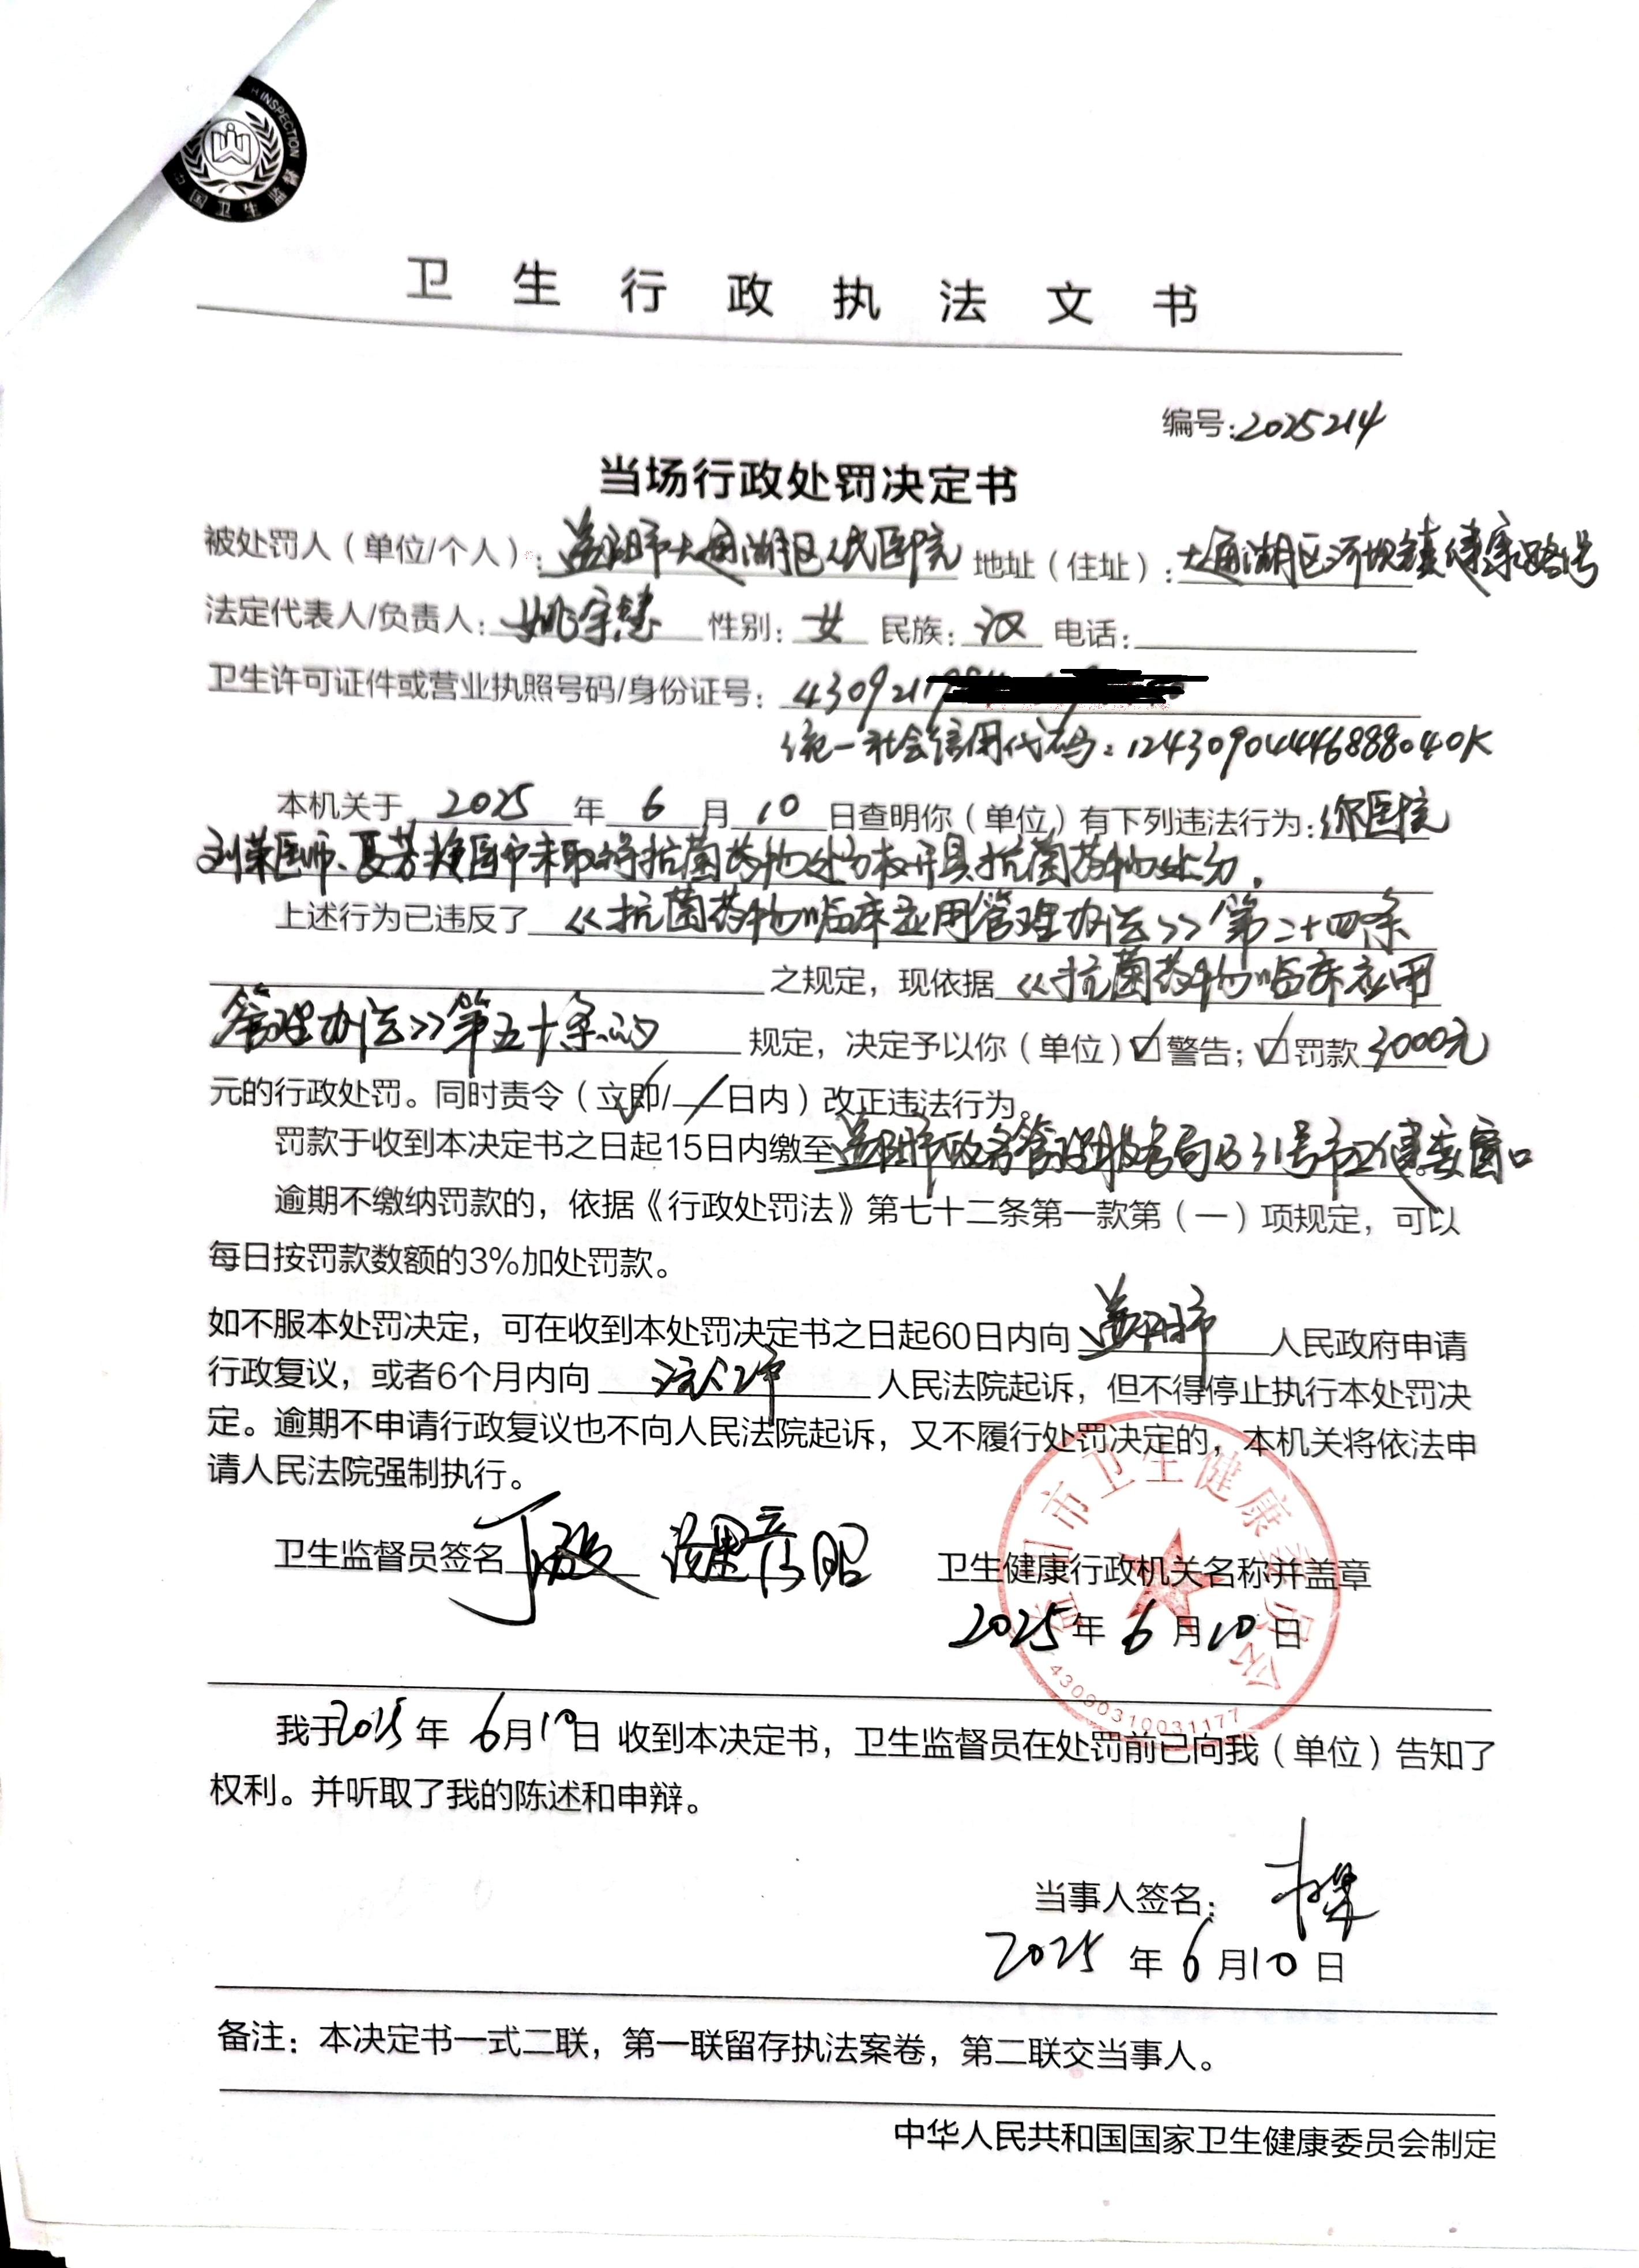 INSPECTION
国卫生监督
卫生行政执法文书
编号:2025214
当场行政处罚决定书
被处罚人（单位/个人）: 益阳市大通湖区人民医院 地址（住址）: 大通湖区河坝镇健康路 号
法定代表人/负责人: 姚宇慧 性别: 女 民族: 汉 电话:
卫生许可证件或营业执照号码/身份证号: 430921
统一社会信用代码: 12430904446888040K
本机关于 2025 年 6 月 10 日查明你（单位）有下列违法行为: 你医院
刘荣医师、夏芳 医师未取得抗菌药物处方权开具抗菌药物处方。
上述行为已违反了 《抗菌药物临床应用管理办法》第二十四条
之规定，现依据 《抗菌药物临床应用
管理办法》第五十条的 规定，决定予以你（单位）☑警告; ☑罚款 3000元
元的行政处罚。同时责令（立即/ 日内）改正违法行为。
罚款于收到本决定书之日起15日内缴至 益阳市政务管理服务局B31号市卫健委窗口
逾期不缴纳罚款的，依据《行政处罚法》第七十二条第一款第（一）项规定，可以
每日按罚款数额的3%加处罚款。
如不服本处罚决定，可在收到本处罚决定书之日起60日内向 益阳市 人民政府申请
行政复议，或者6个月内向 沅江市 人民法院起诉，但不得停止执行本处罚决
定。逾期不申请行政复议也不向人民法院起诉，又不履行处罚决定的，本机关将依法申
请人民法院强制执行。
卫生监督员签名
卫生健康行政机关名称并盖章
2025年 6 月 10 日
益阳市卫生健康委员会
43090310031177
我于2025年 6月10日 收到本决定书，卫生监督员在处罚前已向我（单位）告知了
权利。并听取了我的陈述和申辩。
当事人签名:
2025 年 6 月 10 日
备注: 本决定书一式二联，第一联留存执法案卷，第二联交当事人。
中华人民共和国国家卫生健康委员会制定